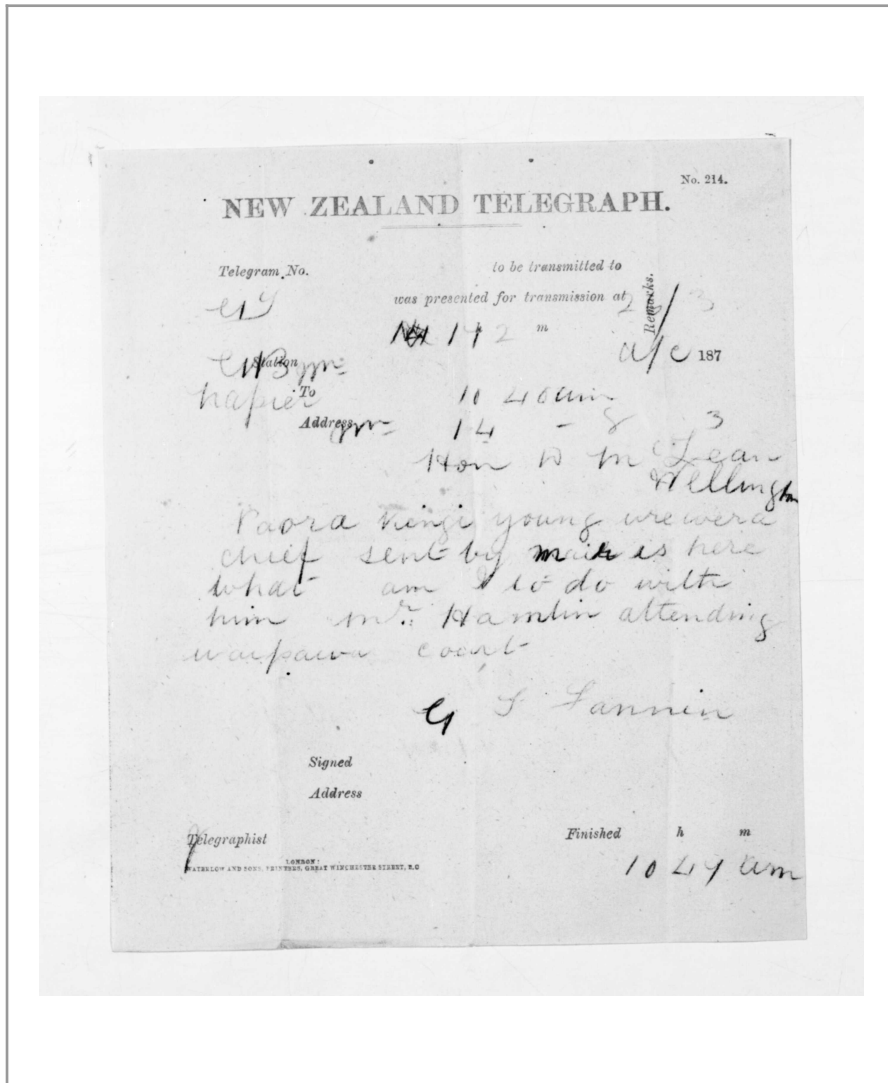 No. 214.
NEW ZEALAND TELEGRAPH.
Telegram No. to be transmitted to
was presented for transmission at
Remarks.
h m
Station a/c 187
napier To 10 40 am
Address 14 - 3
Hon D McLean
Wellington
Paora Kingi young urewera
chief sent by mair is here
what am I to do with
him Mr. Hamlin attending
waipawa court
G T Fannin
Signed
Address
Telegraphist Finished h m
LONDON:
WATERLOW AND SONS, PRINTERS, GREAT WINCHESTER STREET, E.C
10 49 am